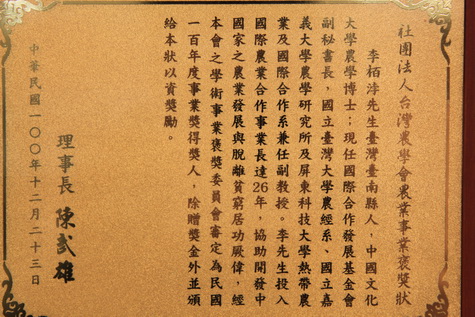 社團法人台灣農學會農業事業褒獎狀
李栢浡先生臺灣臺南縣人，中國文化
大學農學博士；現任國際合作發展基金會
副秘書長，國立臺灣大學農經系、國立嘉
義大學農學研究所及屏東科技大學熱帶農
業及國際合作系兼任副教授。李先生投入
國際農業合作事業長達26年，協助開發中
國家之農業發展與脫離貧窮居功厥偉，經
本會之學術事業褒獎委員會審定為民國
一百年度事業獎得獎人，除贈獎金外並頒
給本狀以資獎勵。
理事長 陳貳雄
中華民國一〇〇年十二月二十三日